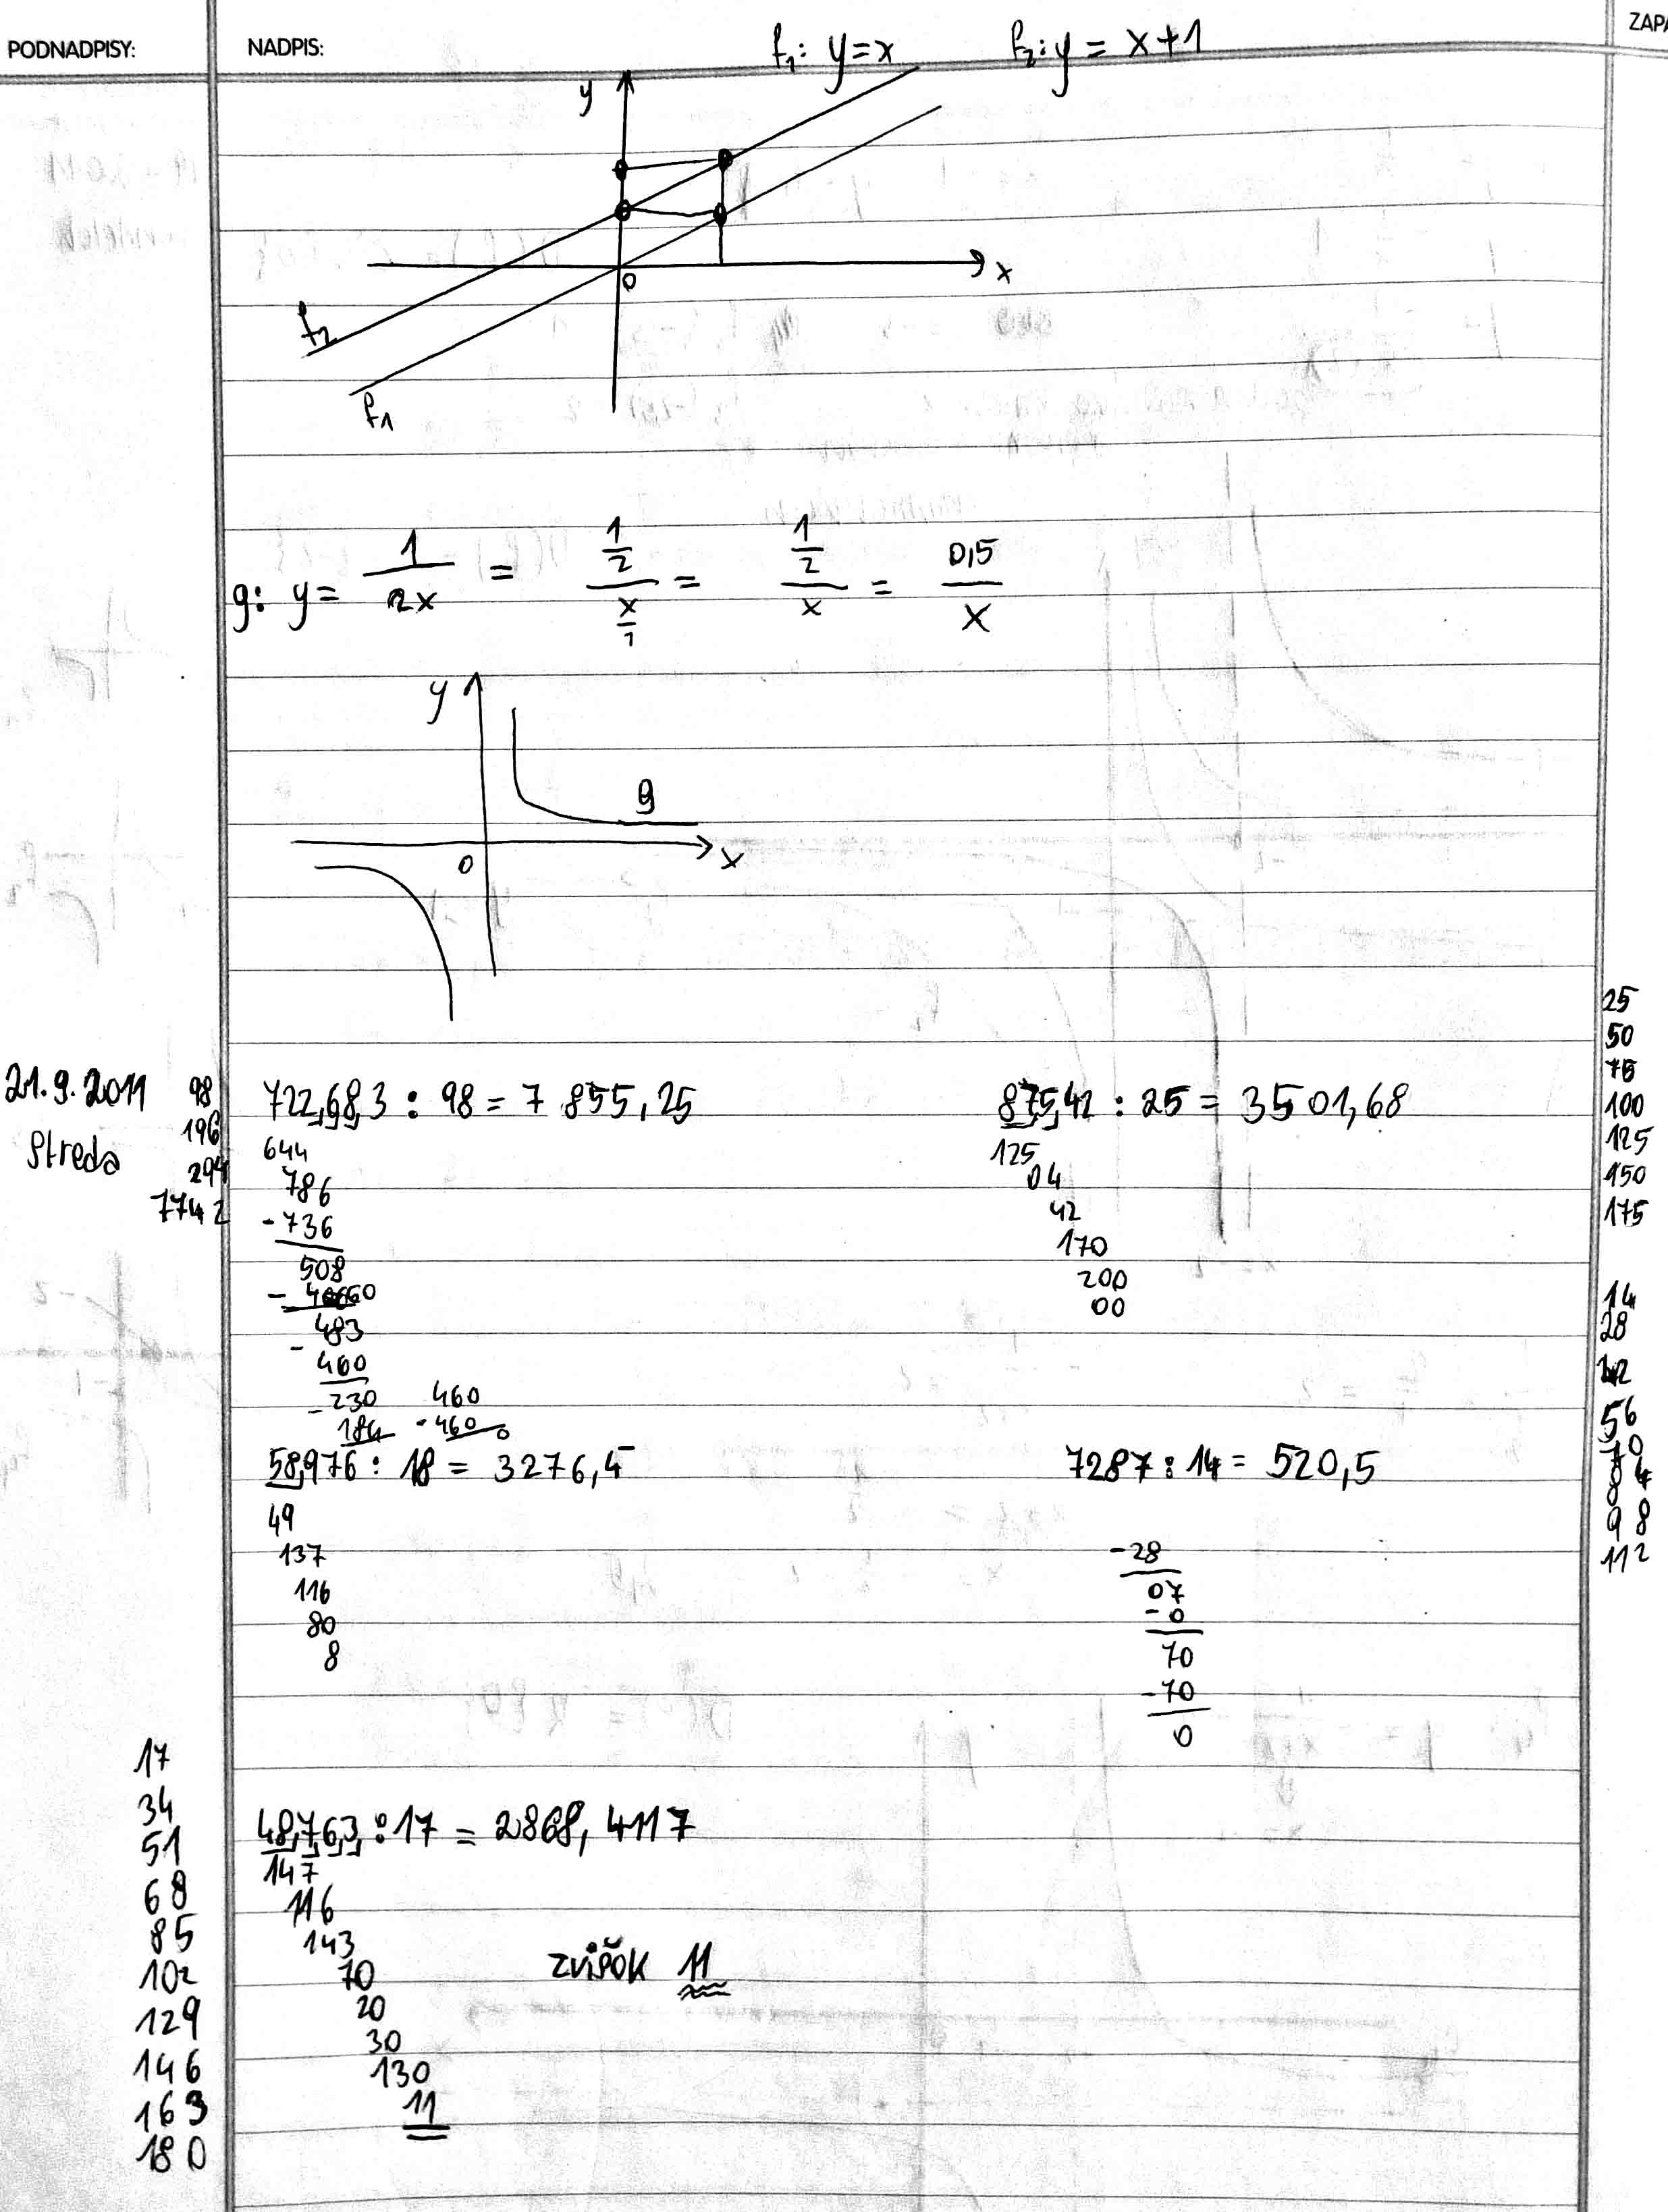 PODNADPISY:
NADPIS:
f₁: y=x f₂: y = x+1
ZAPA
y
x
0
f₂
f₁
g: y = 1/2x = 1/2 / x/1 = 1/2 / x = 0,5/x
y
g
0
x
21.9.2011
Streda
98
196
294
7742
722,683 : 98 = 7 855,25
644
786
-736
508
-
483
-
460
-230
184
460
-460
0
87542 : 25 = 3501,68
125
04
42
170
200
00
25
50
75
100
125
150
175
58,976 : 18 = 3276,4
49
137
116
80
8
7287 : 14 = 520,5
-28
07
-0
70
-70
0
14
28
42
56
70
84
98
112
17
34
51
68
85
102
129
146
163
180
48,763 : 17 = 2868,4117
147
116
143
70
20
30
130
11
zvišok 11